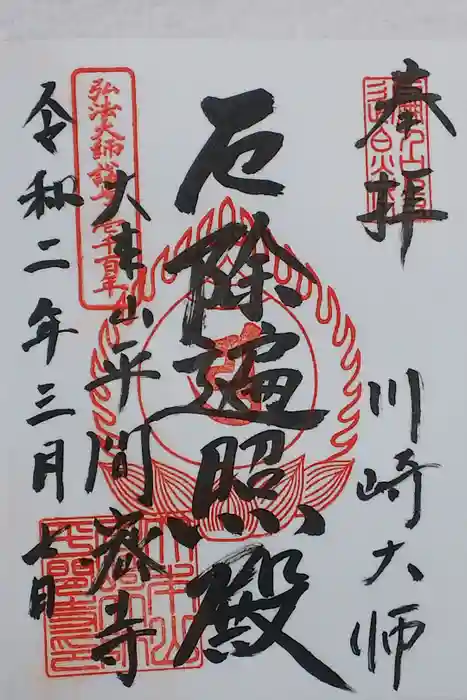 奉拝
川崎大師
厄除遍照殿
大本山平間密寺
弘法大師諡号壱千百年
令和二年三月七日